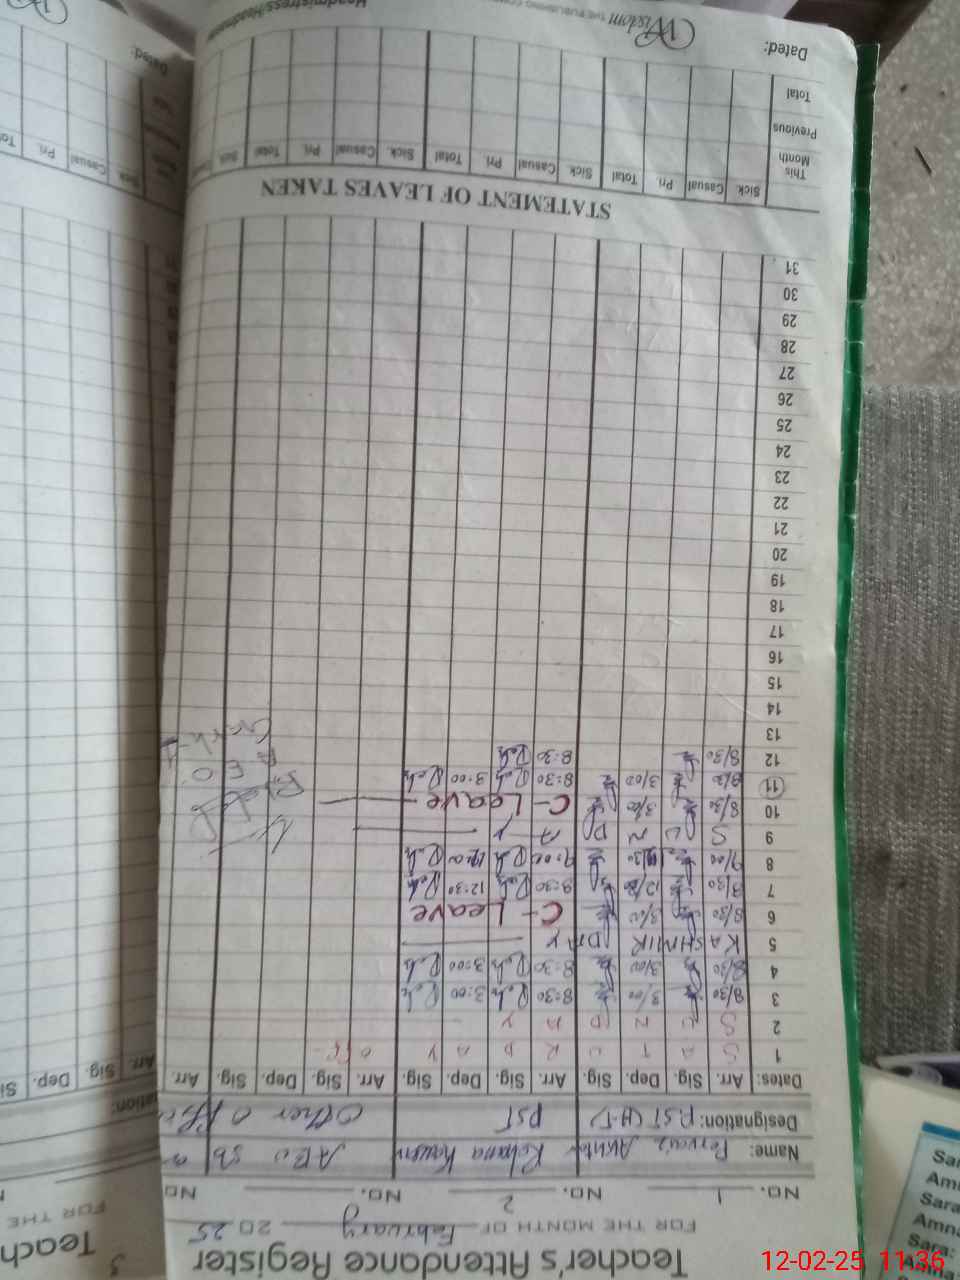 Teacher's Attendance Register
FOR THE MONTH OF February 2025
No. 1 No. 2 No. No.
Name: Pervaiz Akhtar Rehana Kausar ABO Sb
Designation: PST (H-T) PST Other
Dates: Arr. Sig. Dep. Sig. Arr. Sig. Dep. Sig. Arr. Sig. Dep. Sig. Arr.
1 S A T U R D A Y OFF
2 S U N D A Y
3 8/30 3/00 8:30 Reh 3:00 Reh
4 8/30 3/00 8:30 Reh 3:00 Reh
5 KASHMIR DAY
6 8/30 3/00 C - Leave
7 8/30 12/30 8:30 Reh 12:30 Reh
8 9/00 9:00 Reh Reh
9 S U N D A Y
10 8/30 3/00 C - Leave
11 8/30 3/00 8:30 Reh 3:00 Reh
12 8/30 8:30 Reh
13
14
15
16
17
18
19
20
21
22
23
24
25
26
27
28
29
30
31
STATEMENT OF LEAVES TAKEN
Sick. Casual Pri. Total Sick. Casual Pri. Total Sick. Casual Pri. Total Sick.
This Month
Previous
Total
Dated:
Wisdom THE PUBLISHING
Headmistress/Headmaster
Teach
FOR THE
Arr. Sig. Dep. Si
Sick Casual Pri.
Dated:
12-02-25 11:36